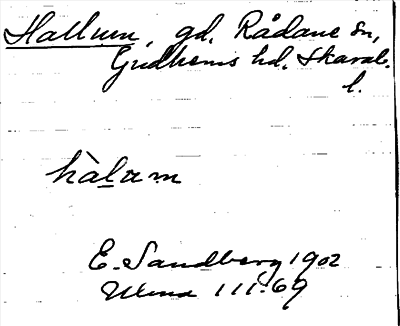 Hallum, gd. Rådane sn,
Gudhems hd. Skarab.
l.
hàlam
E. Sandberg 1902
111:69